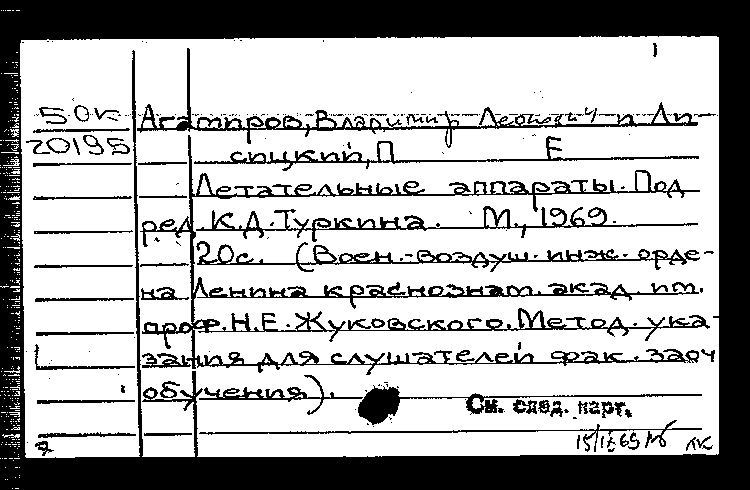 50к Агамиров, Владимир Леонович и Ли-
20195 сицкий, П Е
Летательные аппараты. Под
ред. К.Д. Туркина. М., 1969.
20с. (Воен.-воздуш. инж. орде-
на Ленина краснознам. акад. им.
проф. Н.Е. Жуковского. Метод. ука-
зания для слушателей фак. заоч
обучения).
См. след. карт.
15/IX 69 лк